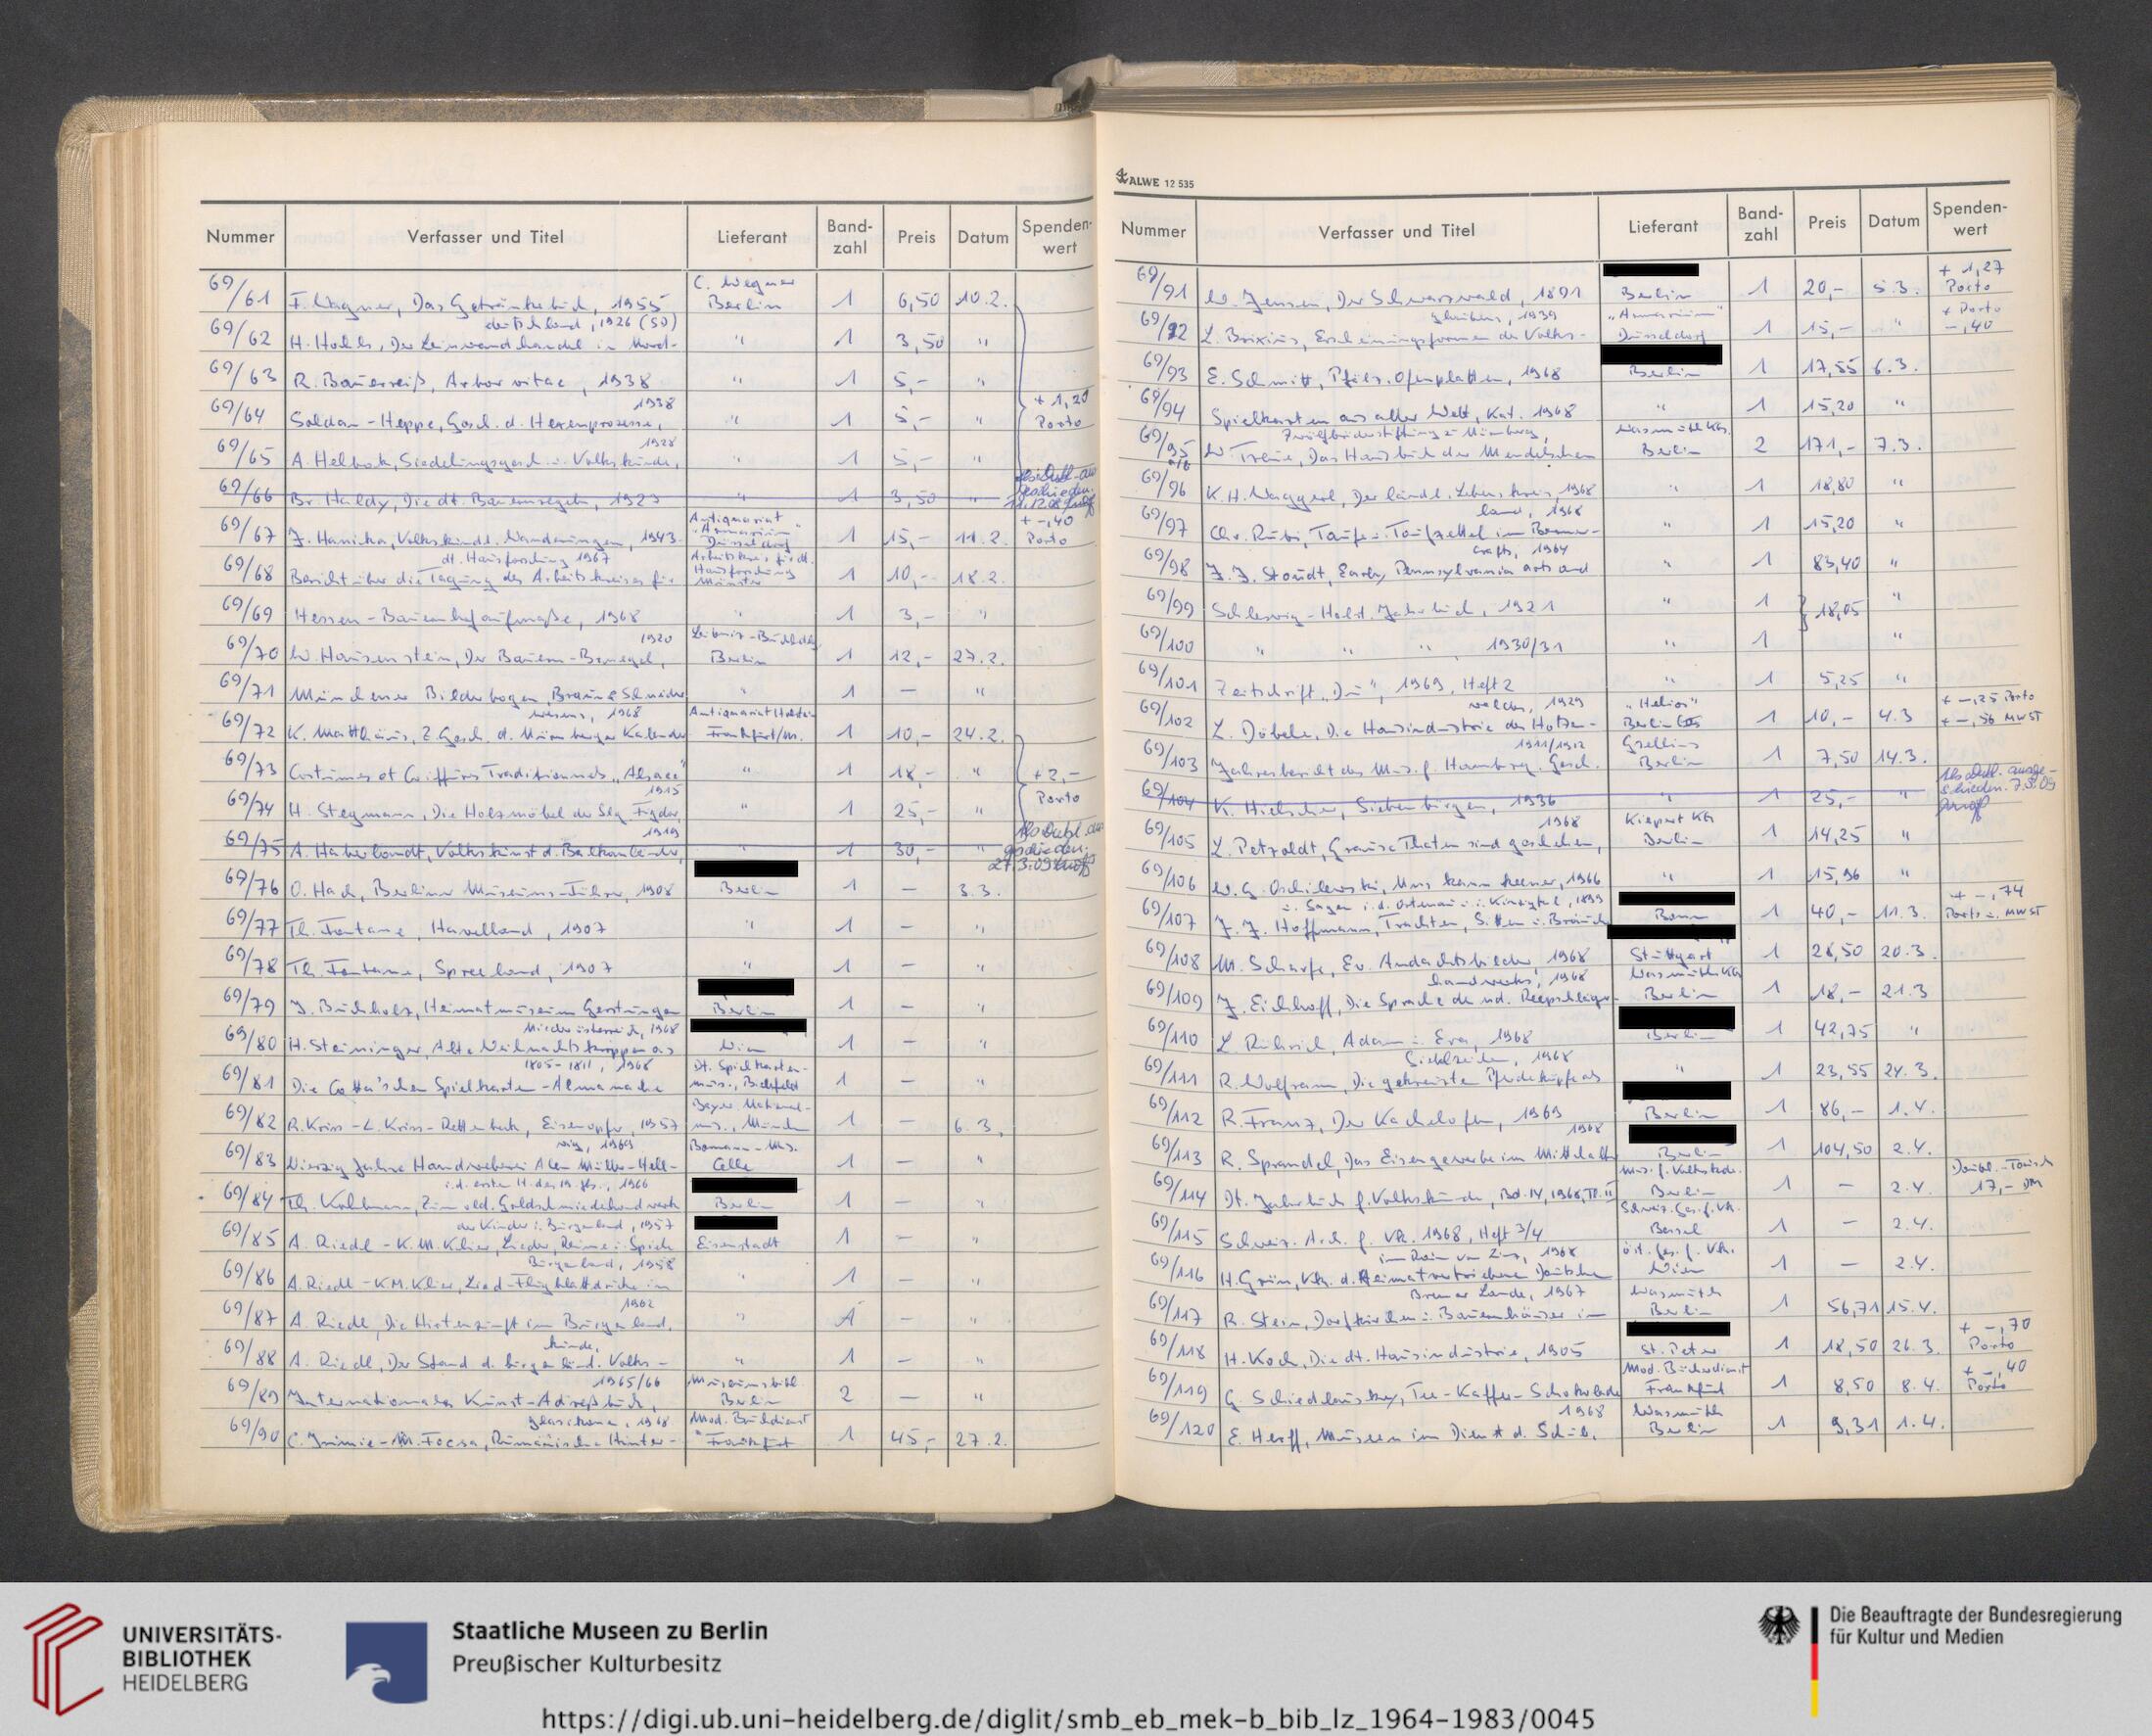 Nummer Verfasser und Titel Lieferant Band-zahl Preis Datum Spenden-wert
69/61 F. Wagner, Das Getränkebuch, 1955 C. Wegner Berlin 1 6,50 10.2.
deutschland, 1926 (SD)
69/62 H. Der Leinwandhandel in Nord- " 1 3,50 "
69/63 R. Bauerreiß, Arbor vitae, 1938 " 1 5,- "
1938 + 1,20
69/64 Soldan-Heppe, Gesch. d. Hexenprozesse, " 1 5,- " Porto
1928
69/65 A. Helbok, Siedelungsgesch. u. Volkskunde, " 1 5,- "
69/66 Br. Haldy, Die dt. Bauernregeln, 1923 " 1 3,50 " Als Dubl. ausgeschieden.
69/67 J. Hanika, Volkskundl. Wandlungen, 1943 Antiquariat "Armarium" Düsseldorf 1 15,- 11.2. + -,40 Porto
dt. Hausforschung 1967
69/68 Bericht über die Tagung des Arbeitskreises für Arbeitskreis für dt. Hausforschung Münster 1 10,- 18.2.
69/69 Hessen-Bauernhofaufmaße, 1968 " 1 3,- "
1920
69/70 W. Hausenstein, Der Bauern-Bruegel, Leibniz-Buchhdlg Berlin 1 12,- 27.2.
69/71 Münchener Bilderbogen, Braun & Schneider " 1 - "
wesens, 1968
69/72 K. Matthäus, Z. Gesch. d. Nürnberger Kalender Antiquariat Holstein Frankfurt/M. 1 10,- 24.2.
69/73 Costumes et Coiffures Traditionnels "Alsace" " 1 18,- " + 2,-
1915
69/74 H. Stegmann, Die Holzmöbel der Slg Figdor, " 1 25,- " Porto
1919
69/75 A. Haberlandt, Volkskunst d. Balkanländer, " 1 30,- " Als Dubl. ausgeschieden. 27.3.09
69/76 O. Hach, Berliner Museums-Führer, 1908 Berlin 1 - 3.3.
69/77 Th. Fontane, Havelland, 1907 " 1 - "
69/78 Th. Fontane, Spreeland, 1907 " 1 - "
69/79 J. Buchholz, Heimatmuseum Gerstungen Berlin 1 - "
Niederösterreich, 1968
69/80 H. Steininger, Alte Weihnachtskrippen aus Wien 1 - "
1805-1811, 1968
69/81 Die Cotta'schen Spielkarten-Almanache Dt. Spielkarten-mus., Bielefeld 1 - "
69/82 R. Kriss-L. Kriss-Rettenbeck, Eisenopfer, 1957 Bayer. National-mus., München 1 - 6.3.
1969
69/83 Vierzig Jahre Handweberei Alen Müller-Hell- Bomann-Mus. Celle 1 - "
i.d. ersten H. des 19. Jhs., 1966
69/84 Th. Kohlmann, Zum old. Goldschmiedehandwerk Berlin 1 - "
der Kinder i. Burgenland, 1957
69/85 A. Riedl-K.M. Klier, Lieder, Reime u. Spiele Eisenstadt 1 - "
Burgenland, 1958
69/86 A. Riedl-K.M. Klier, Lied-Flugblattdrucke im " 1 - "
1962
69/87 A. Riedl, Die Hirtenzunft im Burgenland, " 1 - "
kunde,
69/88 A. Riedl, Der Stand d. burgenländ. Volks- " 1 - "
1965/66
69/89 Internationales Kunst-Adreßbuch, Museumsbibl. Berlin 2 - "
glasikone, 1968
69/90 C. Irimie-M. Focsa, Rumänische Hinter- Mod. Buchdienst Frankfurt 1 45,- 27.2.
ALWE 12 535
Nummer Verfasser und Titel Lieferant Band-zahl Preis Datum Spenden-wert
69/91 W. Jensen, Der Schwarzwald, 1891 Berlin 1 20,- 5.3. + 1,27 Porto
glaubens, 1939
69/92 L. Brixius, Erscheinungsformen des Volks- "Armarium" Düsseldorf 1 15,- " + Porto -,40
69/93 E. Schmitt, Pfälz. Ofenplatten, 1968 Berlin 1 17,55 6.3.
69/94 Spielkarten aus aller Welt, Kat. 1968 " 1 15,20 "
Zwölfbrüderstiftung zu Nürnberg,
69/95 a/b W. Treue, Das Hausbuch der Mendelschen Wasmuth KG. Berlin 2 171,- 7.3.
69/96 K.H. Waggerl, Der ländl. Lebenskreis, 1968 " 1 18,80 "
land, 1968
69/97 Chr. Rubi, Taufe u. Taufzettel im Berner- " 1 15,20 "
crafts, 1964
69/98 J.J. Stoudt, Early Pennsylvania arts and " 1 83,40 "
69/99 Schleswig-Holst. Jahrbuch, 1921 " 1 18,05 "
69/100 " " ", 1930/31 " 1 "
69/101 Zeitschrift "Du", 1969, Heft 2 " 1 5,25 "
waldes, 1929
69/102 L. Döbele, Die Hausindustrie des Hotzen- "Helios" Berlin 1 10,- 4.3 + -,25 Porto + -,56 MWST
1911/1912
69/103 Jahresbericht des Mus. f. Hamburg. Gesch. Gsellius Berlin 1 7,50 14.3.
69/104 K. Hielscher, Siebenbürgen, 1936 " 1 25,- " Als Dubl. ausgeschieden. 7.5.09
1968
69/105 L. Petzoldt, Grause Thaten sind geschehen, Kiepert KG Berlin 1 14,25 "
69/106 W.G. Oschilewski, Uns kann keener, 1966 " 1 15,96 "
u. Sagen i.d. Ortenau u. i. Kinzigtal, 1899
69/107 J.J. Hoffmann, Trachten, Sitten u. Bräuche Bonn 1 40,- 11.3. + -,74 Porto u. MWST
69/108 M. Scharfe, Ev. Andachtsbilder, 1968 Stuttgart 1 28,50 20.3.
handwerks, 1968
69/109 J. Eichhoff, Die Sprache des nd. Reepschläger- Wasmuth KG Berlin 1 18,- 21.3
69/110 L. Röhrich, Adam u. Eva, 1968 Berlin 1 42,75 "
Giebelzeichen, 1968
69/111 R. Wolfram, Die gekreuzten Pferdeköpfe als " 1 23,55 24.3.
69/112 R. Franz, Der Kachelofen, 1969 Berlin 1 86,- 1.4.
1968
69/113 R. Sprandel, Das Eisengewerbe im Mittelalter Berlin 1 104,50 2.4.
69/114 Dt. Jahrbuch f. Volkskunde, Bd. 14, 1968, Tl. II Mus. f. Volkskde. Berlin 1 - 2.4. Doubl.-Tausch 17,- DM
69/115 Schweiz. Arch. f. Vk. 1968, Heft 3/4 Schweiz. Ges. f. Vk. Basel 1 - 2.4.
1968
69/116 H. Grün, Vk. d. Heimatvertriebenen Deutschen öst. Ges. f. Vk. Wien 1 - 2.4.
Bremer Lande, 1967
69/117 R. Stein, Dorfkirchen u. Bauernhäuser im Wasmuth Berlin 1 56,71 15.4.
69/118 H. Koch, Die dt. Hausindustrie, 1905 St. Peter 1 18,50 26.3. + -,70 Porto
69/119 G. Schiedlausky, Tee-Kaffee-Schokolade Mod. Bücherdienst Frankfurt 1 8,50 8.4. + -,40 Porto
1968
69/120 E. Herff, Museen im Dienst d. Schule. Wasmuth Berlin 1 9,31 1.4.
UNIVERSITÄTS-
BIBLIOTHEK
HEIDELBERG
Staatliche Museen zu Berlin
Preußischer Kulturbesitz
Die Beauftragte der Bundesregierung
für Kultur und Medien
https://digi.ub.uni-heidelberg.de/diglit/smb_eb_mek-b_bib_lz_1964-1983/0045